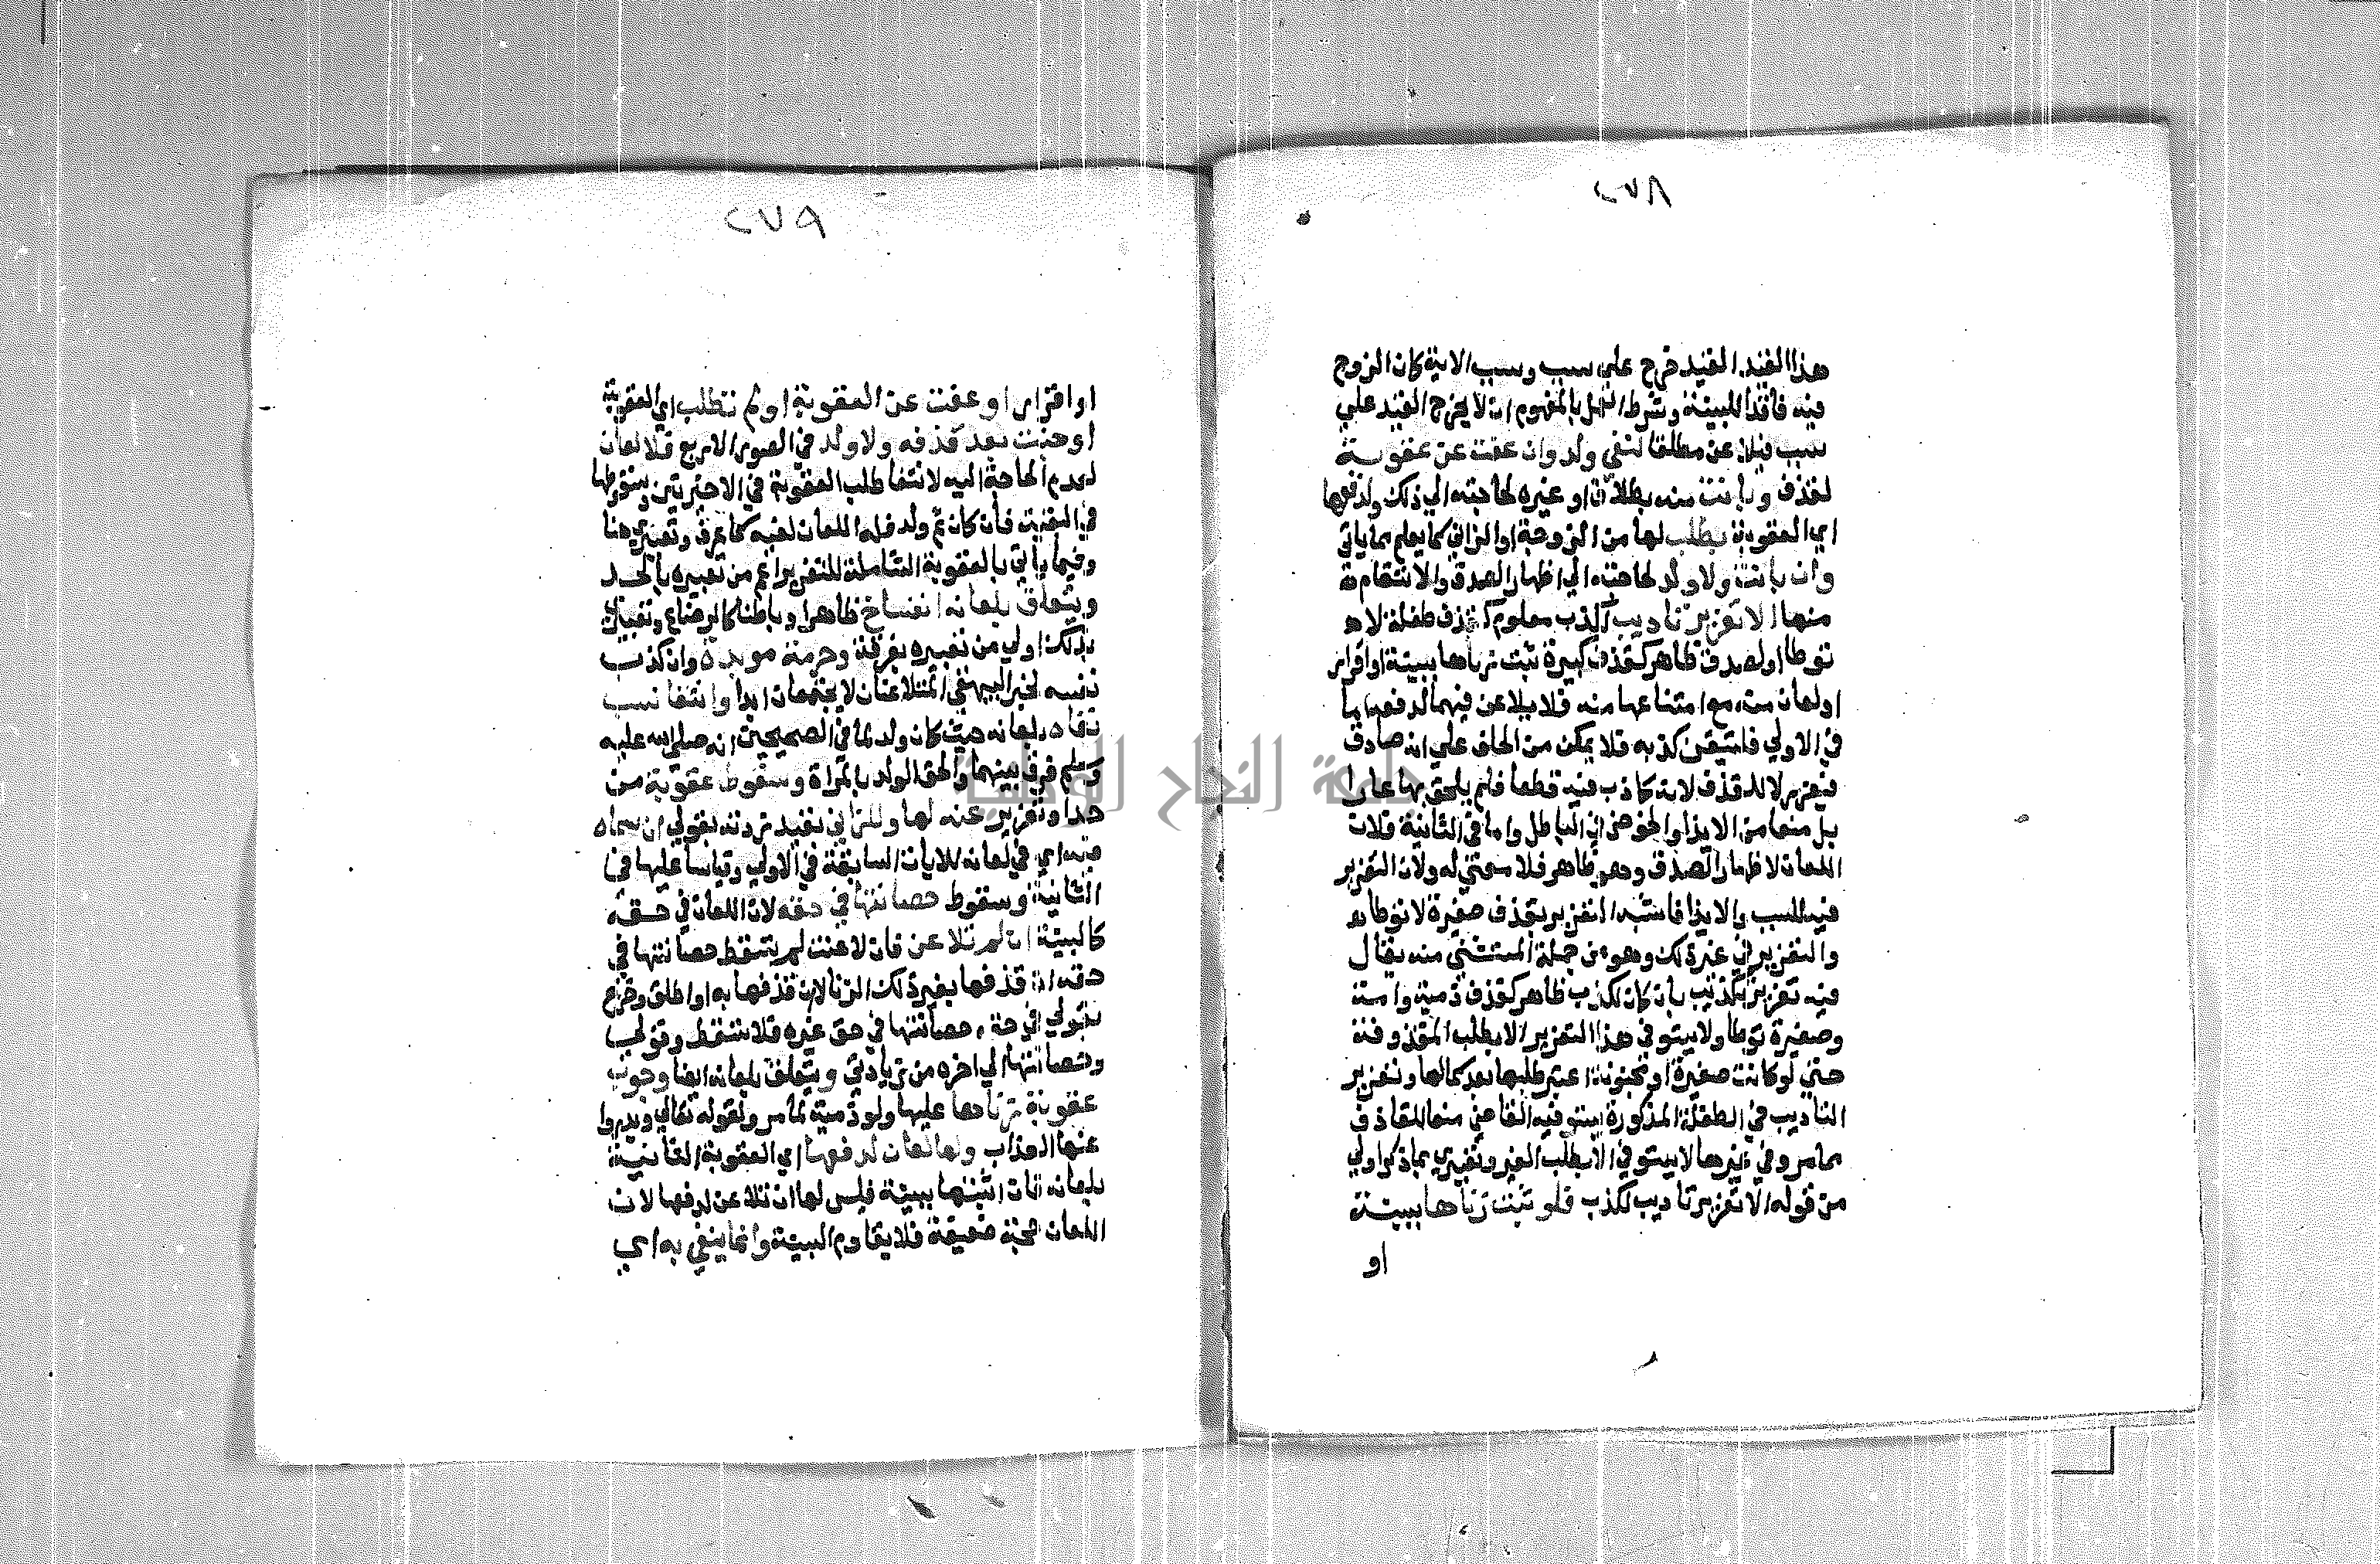 ٢٧٨
هذا القيد القيد خرج على سبب وسبب الاية كان الزوج
فيه فاقدا للبينة وشرط العمل بالمفهوم ان لا يخرج القيد على
سبب فيلاعن مطلقا لنفي ولد وان عفت عن عقوبة
لقذف وبانت منه بطلاق او غيره لحاجته الى ذلك ولدفعها
اي العقوبة بطلب لها من الزوجة او الزاني كما يعلم مما ياتي
وان بانت ولا ولد لحاجته الى اظهار الصدق والانتقام
منها الا تعزير تاديب لكذب معلوم كقذف طفلة لا
توطا او لصدق ظاهر كقذف كبيرة ثبت زناها ببينة او اقرار
او لعان منه مع امتناعها منه فلا يلاعن فيهما لدفعه اما
في الاولى فلتيقن كذبه فلا يمكن من الحلف على انه صادق
فيعزر لا للقذف لانه كاذب فيه قطعا فلم يلحق بها عارا
بل منعا من الايذا والخوض في الباطل واما في الثانية فلان
اللعان لاظهار الصدق وهو ظاهر فلا معنى له ولان التعزير
فيه للسب والايذا فاشبه التعزير بقذف صغيرة لا توطا
والتعزير في غير ذلك وهو من جملة المستثنى منه يقال
فيه تعزير تكذيب بان كان كذب ظاهر كقذف ذمية وامة
وصغيرة توطا ولا يستوفي هذا التعزير الا بطلب المقذوفة
حتى لو كانت صغيرة او مجنونة اعتبر طلبها بعد كمالها وتعزير
التاديب في الطفلة المذكورة يستوفيه القاضي منعا للقاذف
مما مر وفي غيرها لا يستوفي الا بطلب الغير وتعبيري بما ذكر اولى
من قوله الا تعزير تاديب لكذب فلو ثبت زناها ببينة
او
٢٧٩
او اقرار او عفت عن العقوبة او لم تطلب اي العقوبة
او جنت بعد قذفه ولا ولد في الصور الاربع فلا لعان
لعدم الحاجة اليه لانتفا طلب العقوبة في الاخيرتين وسقوطها
في البقية فان كان ثم ولد فله اللعان لنفيه كما عرف وتعبيري هنا
وفيما ياتي بالعقوبة الشاملة للتعزير اعم من تعبيره بالحد
ويتعلق بلعانه انفساخ ظاهرا وباطنا كالرضاع وتعبيري
بذلك اولى من تعبيره بفرقة وحرمة موبدة وان كذب
نفسه لخبر البيهقي المتلاعنان لا يجتمعان ابدا وانتفا نسب
نفاه بلعانه حيث كان ولد لما في الصحيحين انه صلى الله عليه
وسلم فرق بينهما والحق الولد بالمراة وسقوط عقوبة من
حد او تعزير عنه لها وللزاني بقيد زدته بقولي ان سماه
فيه اي في لعانه للايات السابقة في الاولى وقياسا عليها في
الثانية وسقوط حصانتها في حقه لان اللعان في حقه
كالبينة ان لم تلاعن فان لاعنت لم تسقط حصانتها في
حقه ان قذفها بغير ذلك الزنا لا ان قذفها به او اطلق وخرج
بقولي في حقه حصانتها في حق غيره فلا تسقط وقولي
وحصانتها الى اخره من زيادتي ويتعلق بلعانه ايضا وجوب
عقوبة زناها عليها ولو ذمية لما مر ولقوله تعالى ويدروا
عنها العذاب ولها لعان لدفعها اي العقوبة الثانية
بلعانه فان اثبتها ببينة فليس لها ان تلاعن لدفعها لان
اللعان حجة ضعيفة فلا يقاوم البينة وانما ينفي به اي
جامعة النجاح الوطنية